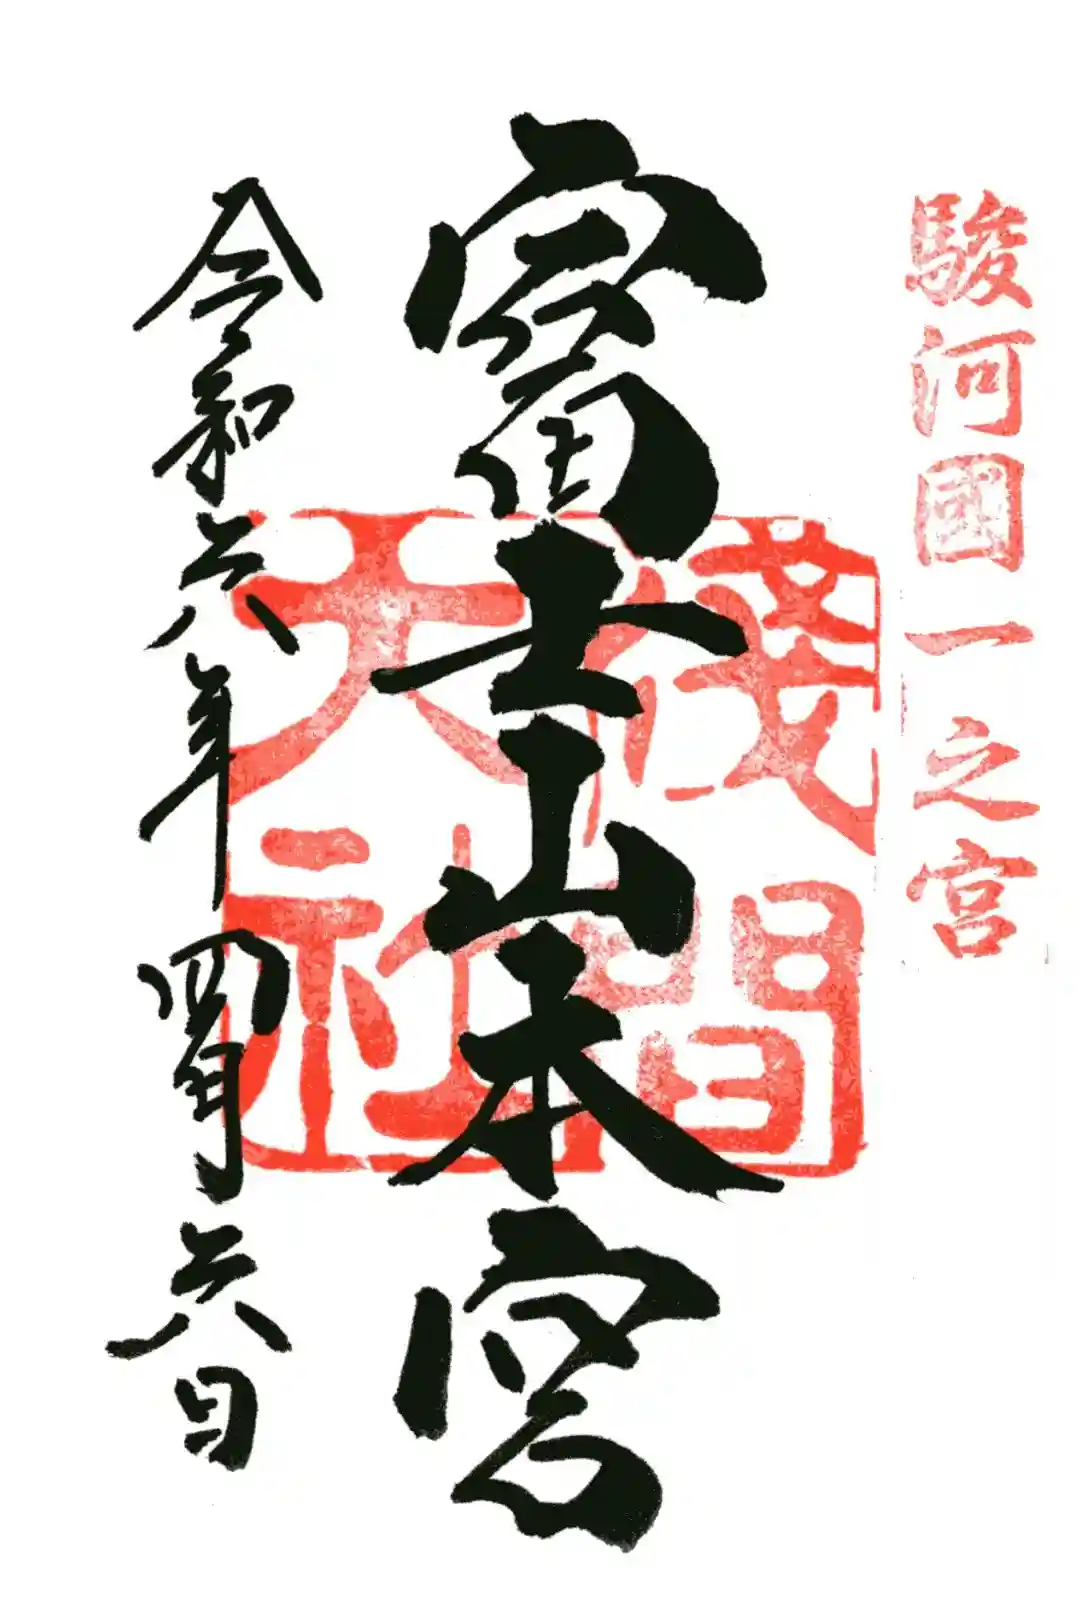 駿河國一之宮
富士山本宮
淺間大社
令和六年四月六日